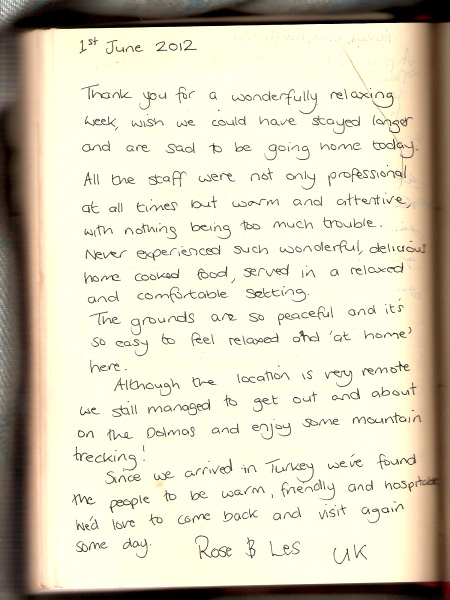 1st June 2012
Thank you for a wonderfully relaxing
week, wish we could have stayed longer
and are sad to be going home today.
All the staff were not only professional
at all times but warm and attentive,
with nothing being too much trouble.
Never experienced such wonderful, delicious
home cooked food, served in a relaxed
and comfortable setting.
The grounds are so peaceful and it's
so easy to feel relaxed and 'at home'
here.
Although the location is very remote
we still managed to get out and about
on the Dolmas and enjoy some mountain
trecking!
Since we arrived in Turkey we've found
the people to be warm, friendly and hospitable
we'd love to come back and visit again
some day.
Rose & Les UK